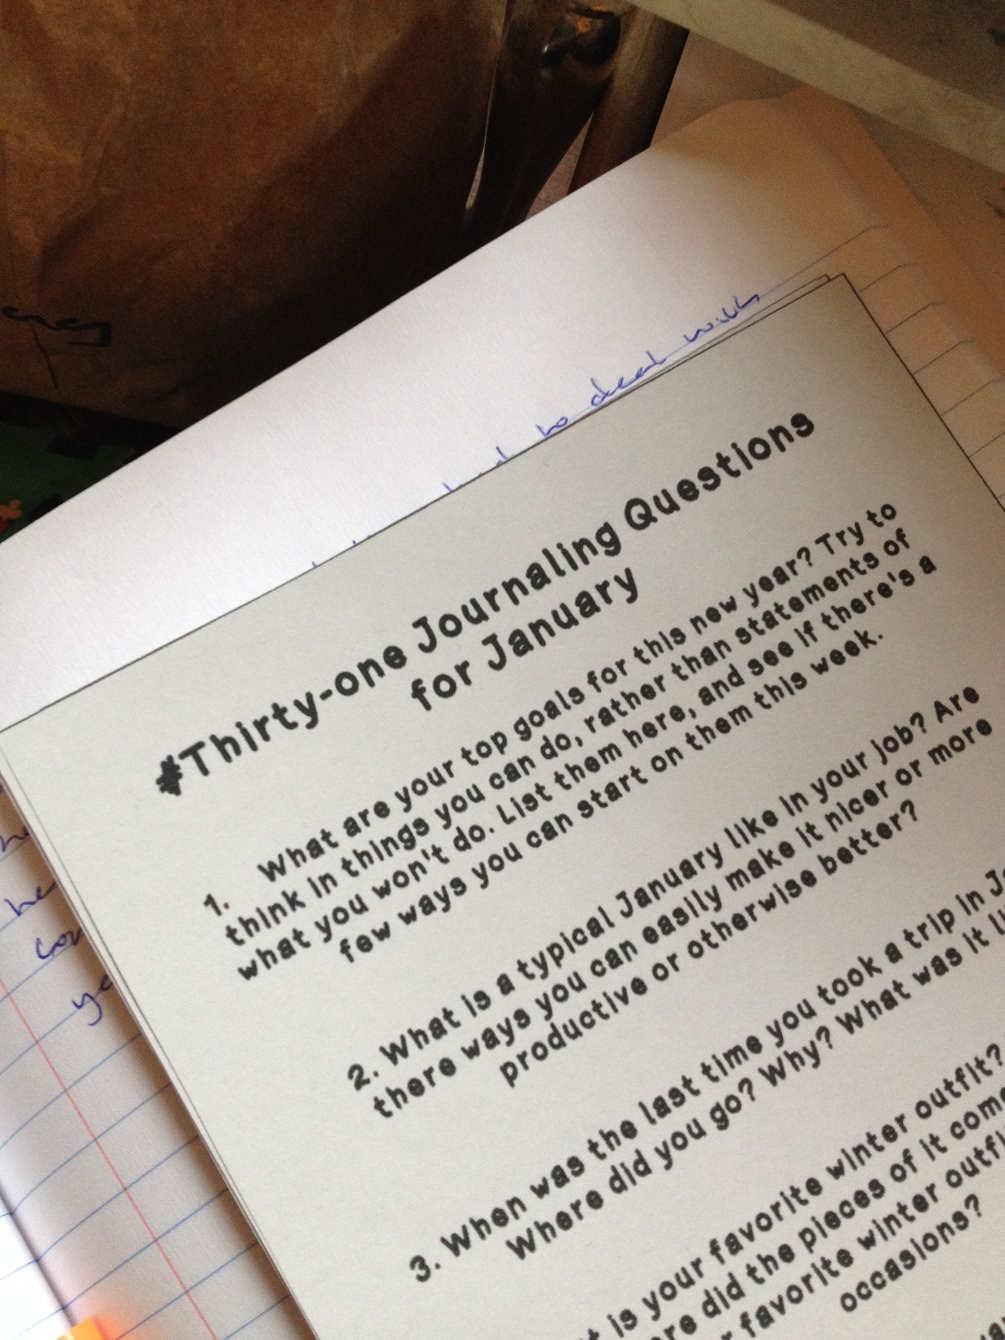 to deal with
#Thirty-one Journaling Questions
for January
1. What are your top goals for this new year? Try to
think in things you can do, rather than statements of
what you won't do. List them here, and see if there's a
few ways you can start on them this week.
2. What is a typical January like in your job? Are
there ways you can easily make it nicer or more
productive or otherwise better?
3. When was the last time you took a trip in
Where did you go? Why? What was it
is your favorite winter outfit?
did the pieces of it
favorite winter
occasions?